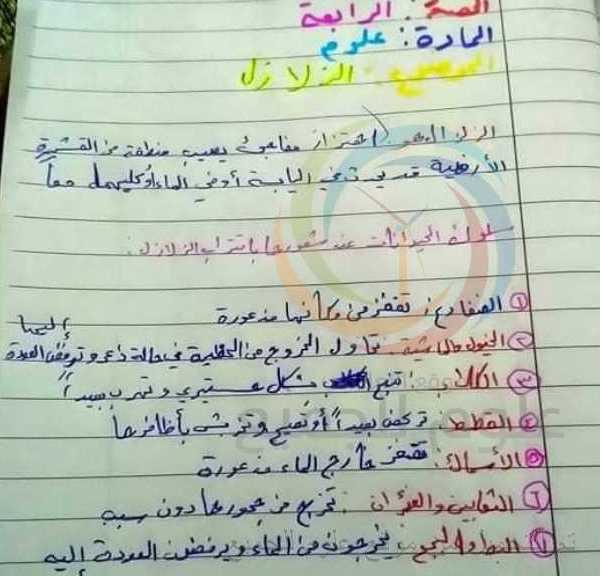 الصف: الرابعة
المادة: علوم
الموضوع: الزلازل
الزلزال هو اهتزاز مفاجئ يصيب منطقة من القشرة
الأرضية قد يحدث في اليابسة أو في الماء أو كليهما معاً
سلوك الحيوانات عند شعورها باقتراب الزلازل:
١ الضفادع: تقفز من مكانها مذعورة
٢ الخيول والماشية: تحاول الخروج من الحظيرة في حالة ذعر وترفض العودة إليها
٣ الكلاب: تنبح بشكل هستيري وتهرب بعيداً
٤ القطط تركض بعيداً أو تصيح وتخربش بأظافرها
٥ الأسماك: تقفز خارج الماء مذعورة
٦ الثعابين والفئران: تخرج من جحورها دون سبب
٧ البط والبجع: يخرجون من الماء ويرفضون العودة إليه
علوم للجميع